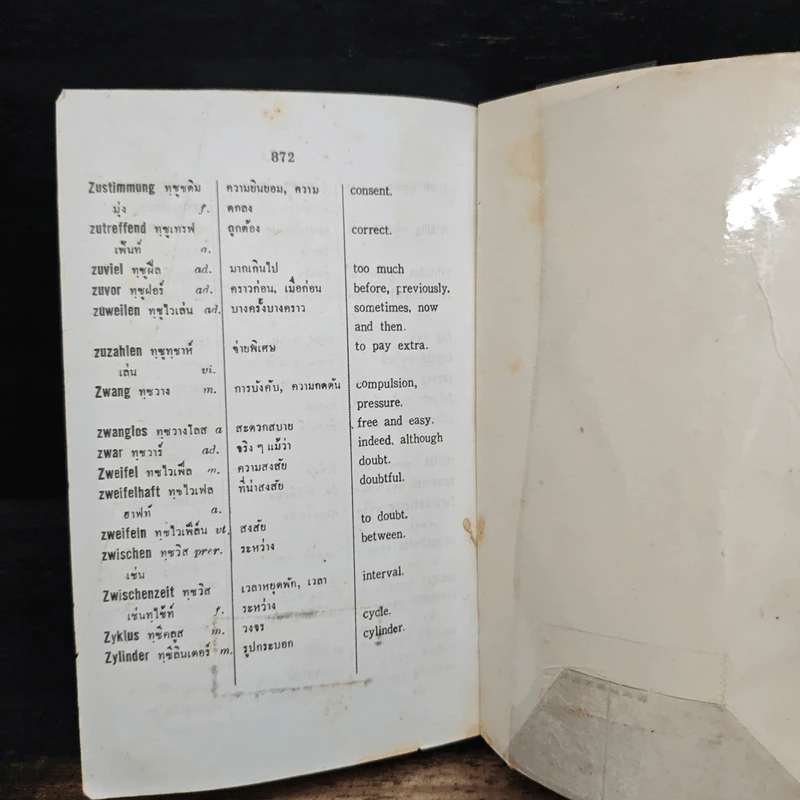 872
Zustimmung ทฺซูชติม ความยินยอม, ความ consent.
มุ่ง f. ตกลง
zutreffend ทฺซูเทรฟ ถูกต้อง correct.
เฟ็นท์ a.
zuviel ทฺซูฝีล ad. มากเกินไป too much
zuvor ทฺซูฝอร์ ad. คราวก่อน, เมื่อก่อน before, previously.
zuweilen ทฺซูไวเล่น ad. บางครั้งบางคราว sometimes, now
and then.
zuzahlen ทฺซูทฺซาห์ จ่ายพิเศษ to pay extra.
เล่น vi.
Zwang ทฺซวาง m. การบังคับ, ความกดดัน compulsion,
pressure.
zwanglos ทฺซวางโลส a สะดวกสบาย free and easy.
zwar ทฺซวาร์ ad. จริง ๆ แม้ว่า indeed, although
Zweifel ทฺซไวเฟ็ล m. ความสงสัย doubt.
zweifelhaft ทฺซไวเฟล ที่น่าสงสัย doubtful.
ฮาฟท์ a.
zweifeln ทฺซไวเฟ็ลน vt. สงสัย to doubt.
zwischen ทฺซวิส prer. ระหว่าง between.
เช่น
Zwischenzeit ทฺซวิส เวลาหยุดพัก, เวลา interval.
เช่นทฺไซ้ท์ f. ระหว่าง
Zyklus ทฺซีคลูส m. วงจร cycle.
Zylinder ทฺซิลินเดอร์ m. รูปกระบอก cylinder.